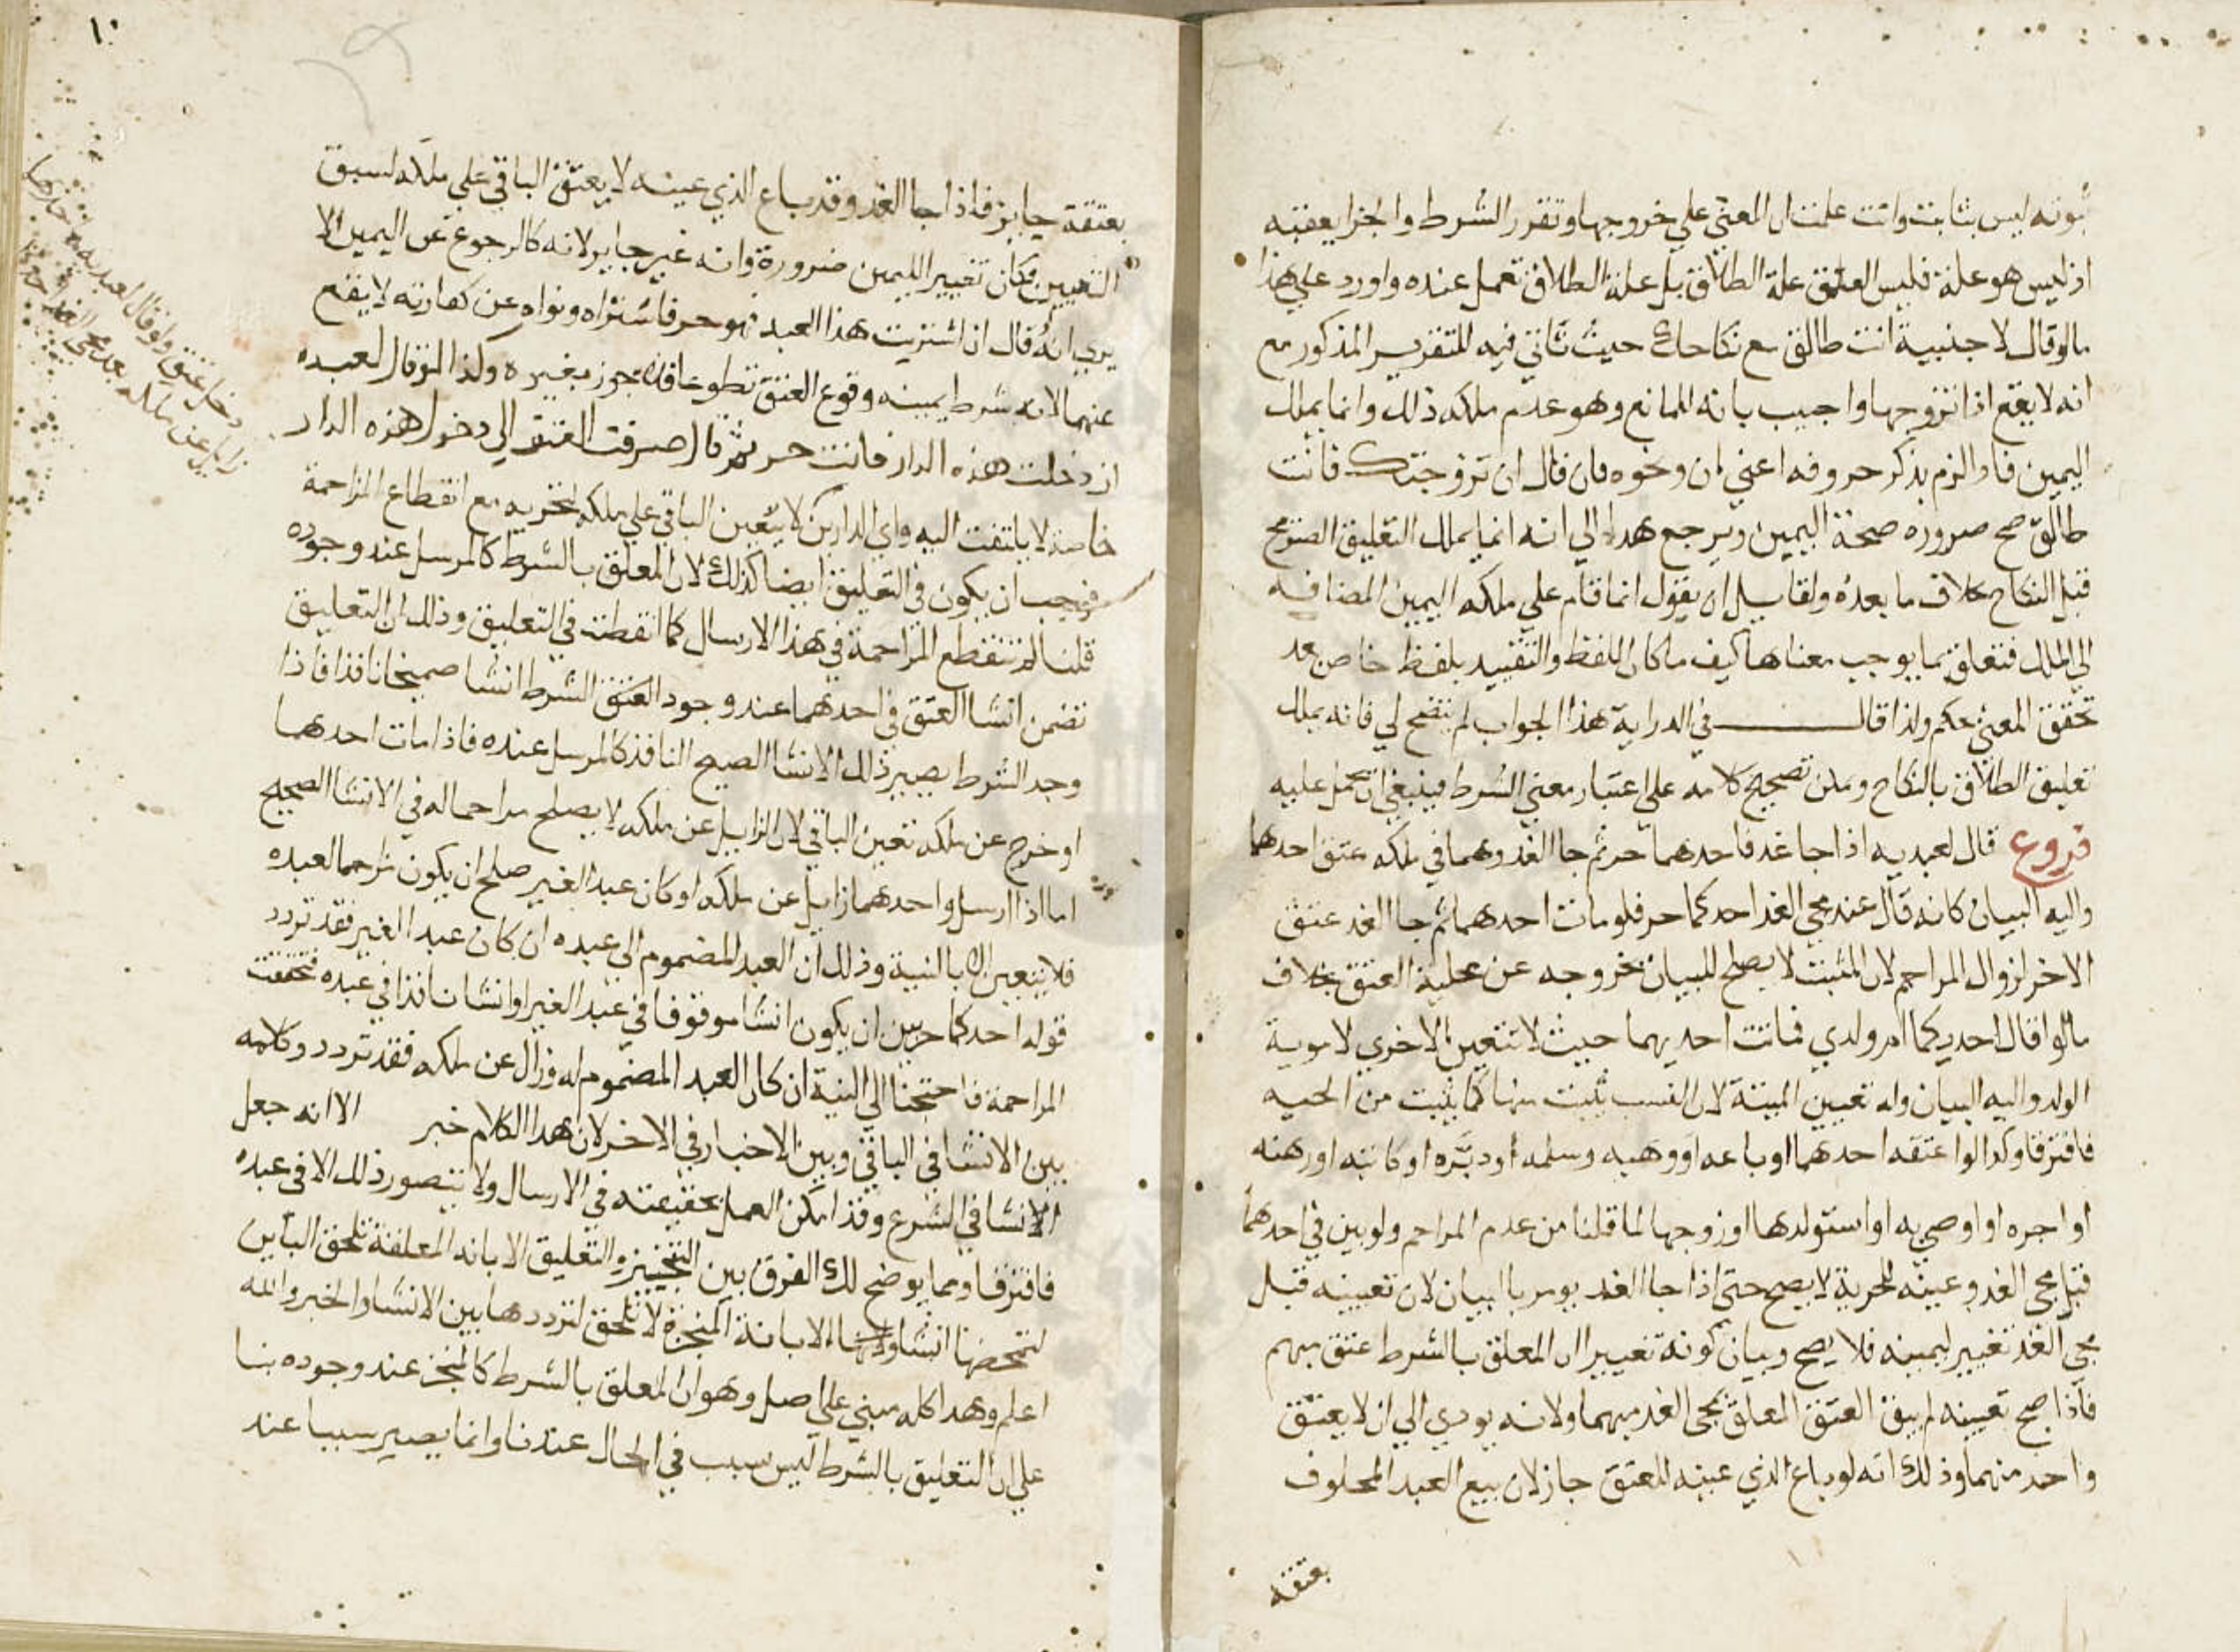 ثبوته ليس بثابت وانت علمت ان المعني علي خروجها وتقرر الشرط والجزا يعقبه
اذ ليس هو علة فليس العتق علة الطلاق بل علة الطلاق تعمل عنده واورد علي هذا
مالو قال لاجنبية انت طالق مع نكاحك حيث تاتي فيه للتقرير المذكور مع
انه لا يقع اذا تزوجها واجيب بانه المانع وهو عدم ملكه ذلك وانما يملك
اليمين فاذا الزم بذكر حروفه اعني ان ونحوه فان قال ان تزوجتك فانت
طالق صح ضروره صحة اليمين ويرجع هدا الي انه انما يملك التعليق الصريح
قبل النكاح بخلاف ما بعده ولقايل ان يقول انما قام علي ملكه اليمين المضافه
الي الملك فتعلق بما يوجب معناها كيف ما كان اللفظ والتقييد بلفظ خاص بعد
تحقق المعني تحكم ولذا قال في الدراية هذا الجواب لم يتضح لي فانه يملك
تعليق الطلاق بالنكاح ويمكن تصحيح كلامه علي اعتبار معني الشرط فينبغي ان يحمل عليه
فروع قال لعبديه اذا جا غد فاحدهما حر ثم جا الغد وهما في ملكه عتق احدهما
واليه البيان كانه قال عند مجي الغد احدكما حر فلو مات احدهما ثم جا الغد عتق
الاخر لزوال المزاحم لان الميت لا يصلح للبيان لخروجه عن محلية العتق بخلاف
مالوا قال احديكما ام ولدي فماتت احديهما حيث لا تتعين الاخري لاموية
الولد واليه البيان وله تعيين الميتة لان النسب يثبت منها كما يثبت من الحيه
فافترقا وكدا لوا عتقه احدهما او باعه او وهبه وسلمه او دبره او كاتبه او رهنه
او اجره او اوصي به او استولدها او زوجها لما قلنا من عدم المزاحم ولو بين في احدهما
قبل مجي الغد وعينه للحرية لا يصح حتي اذا جا الغد يومر بالبيان لان تعيينه قبل
مجي الغد تغيير ليمينه فلا يصح وبيان كونه تغييرا ان المعلق بالشرط عتق مبهم
فاذا صح تعيينه لم يبق العتق المعلق بمجي الغد مبهما ولانه يودي الي ان لا يعتق
واحد منهما وذلك انه لو باع الذي عينه للعتق جاز لان بيع العبد المحلوف
بعتقه
١٠
بعتقه جايز فاذا جا الغد وقد باع الذي عينه لا يعتق الباقي علي ملكه لسبق
التعيين فكان تغيير اليمين ضرورة وانه غير جايز لانه كالرجوع عن اليمين الا
يري انه قال ان اشتريت هذا العبد فهو حر فاشتراه ونواه عن كفارته لا يقع
عنهما لانه شرط يمينه وقوع العتق تطوعا فلا يجوز بغيره وكذا لو قال لعبده
ان دخلت هذه الدار فانت حر ثم قال صرفت العتق الي دخول هذه الدار
خاصة لا يلتفت اليه واي الدارين لا يتعين الباقي علي ملكه لتخريه مع انقطاع المزاحمة
فيجب ان يكون في التعليق ايضا كذلك لان المعلق بالشرط كالمرسل عند وجوده
قلنا لم تنقطع المزاحمة في هذا الارسال كما انقطت في التعليق وذلك ان التعليق
تضمن انشا العتق في احدهما عند وجود العتق الشرط انشا صحيحا نافذا فاذا
وجد الشرط يصير ذلك الانشا الصحيح النافذ كالمرسل عنده فاذا مات احدهما
او خرج عن ملكه تعين الباقي لان الزايل عن ملكه لا يصلح مزاحما له في الانشا الصحيح
اما اذا ارسل واحدهما زايل عن ملكه او كان عبد الغير صلح ان يكون مزاحما لعبده
فلا يتعين الا بالنية وذلك ان العبد المضموم الي عبده ان كان عبد الغير فقد تردد
قوله احدكما حر بين ان يكون انشا موقوفا في عبد الغير او انشا نافذا في عبده فتحققت
المزاحمة فاحتجنا الي النية ان كان العبد المضموم له وزال عن ملكه فقد تردد وكلامه
بين الانشا في الباقي وبين الاخبار في الاخر لان هدا الكلام خبر الا انه جعل
الانشا في الشرع وقد امكن العمل بحقيقته في الارسال ولا يتصور ذلك الا في عبده
فافترقا ومما يوضح لك الفرق بين التنجيز والتعليق الابانه المعلقة تلحق الباين
لتمحضها انشا الابانة المنجزة لا تلحق لترددها بين الانشا والخبر والله
اعلم وهدا كله مبني علي اصل وهو ان المعلق بالشرط كالمنجز عند وجوده بنا
علي ان التعليق بالشرط ليس سبب في الحال عندنا وانما يصير سببا عند